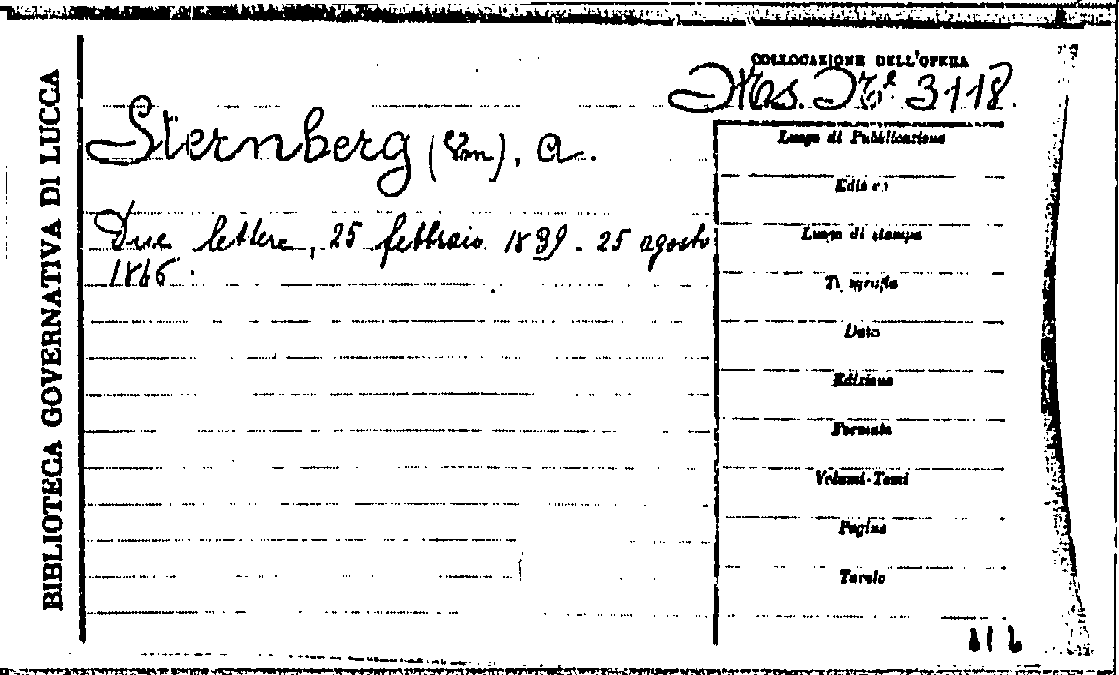 BIBLIOTECA GOVERNATIVA DI LUCCA
COLLOCAZIONE DELL'OPERA
Mss. N.º 3118.
Sternberg (Von), A.
Due lettere, 25 febbraio 1839 - 25 agosto
1866.
Luogo di Pubblicazione
Editore
Luogo di stampa
Tipografia
Data
Edizione
Formato
Volumi-Tomi
Pagine
Tavole